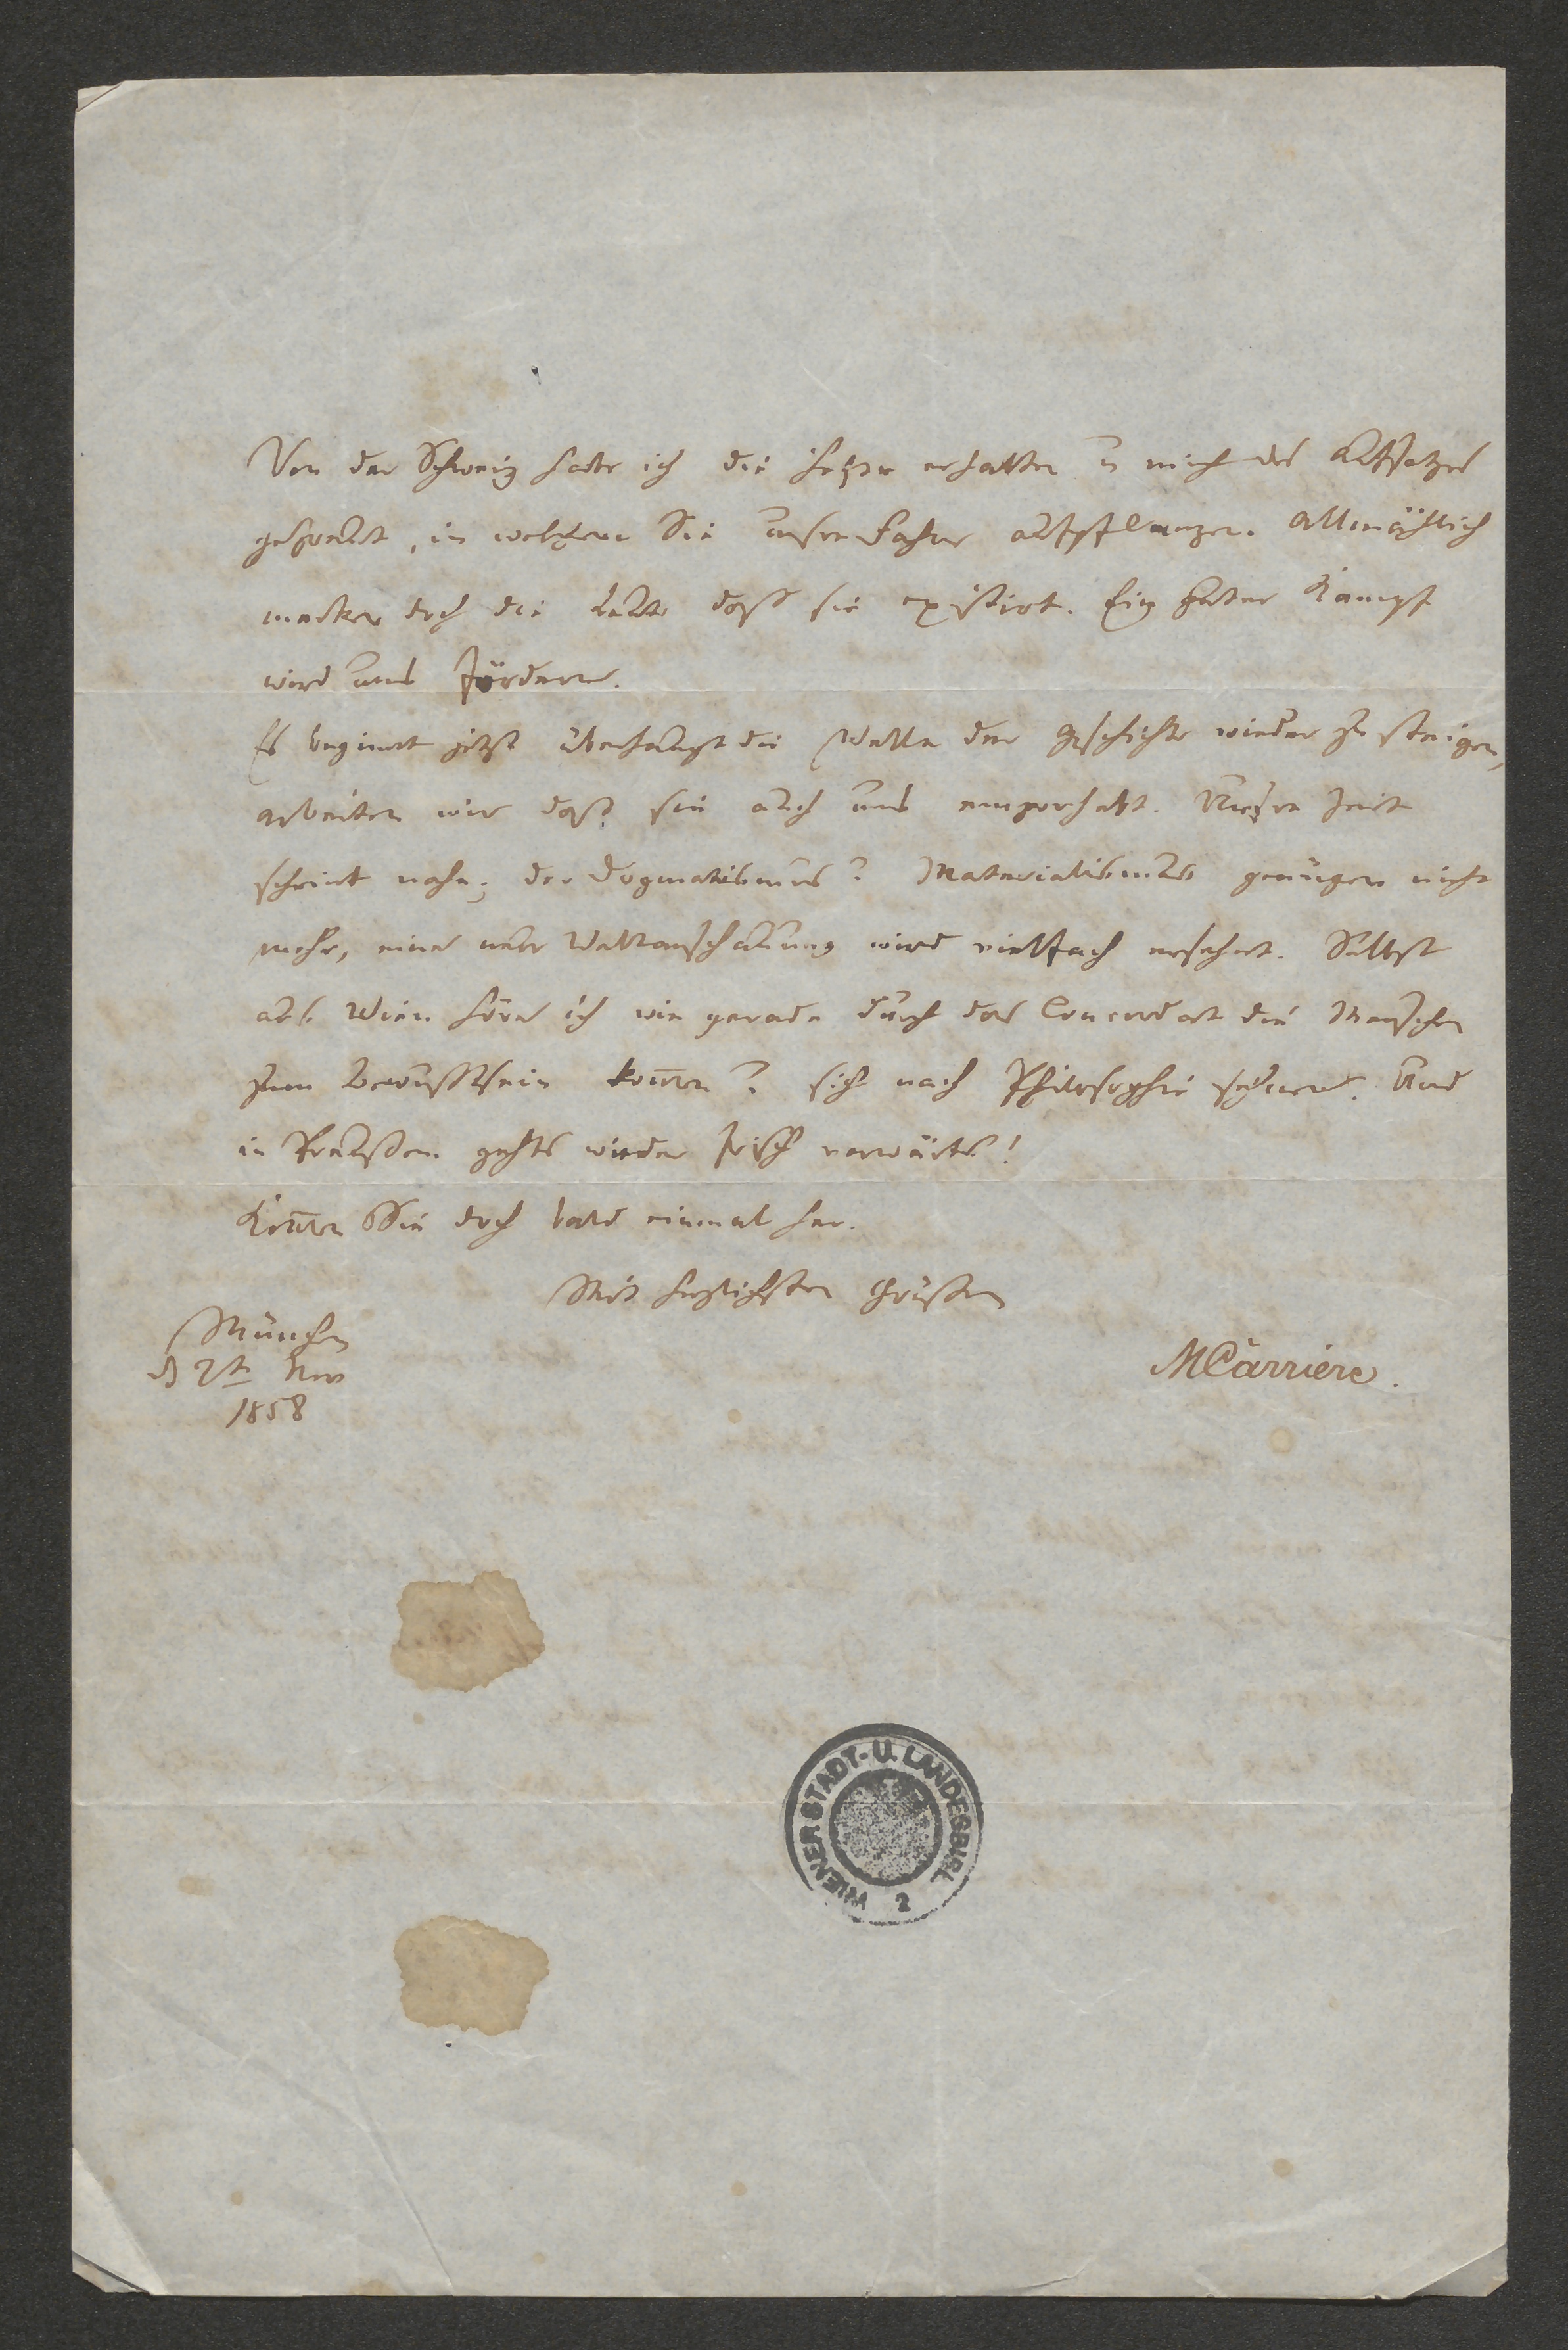 Von der Schweiz habe ich die Hefte erhalten u mich des Aufsatzes
gefreut, in welchem Sie unsre Fahne aufpflanzen. Allmählich
merken doch die Leute daß sie existirt. Ein guter Kampf
wird uns fördern.
Es beginnt jetzt überhaupt die Welle der Geschichte wieder zu steigen,
arbeiten wir daß sie auch uns emporhebt. Unsre Zeit
scheint nahe; der Dogmatismus u Materialismus genügen nicht
mehr, eine neue Weltanschauung wird vielfach ersehnt. Selbst
aus Wien höre ich wie gerade durch das Concordat die Menschen
zum Bewußtsein kom̄en u sich nach Philosophie sehnen. Und
in Preußen gehts wieder frisch vorwärts!
Kom̄en Sie doch bald einmal her.
Mit herzlichsten Grüßen
München
d 2t Nov
1858
MCarriere.
WIENER STADT- U. LANDESBIBL
2